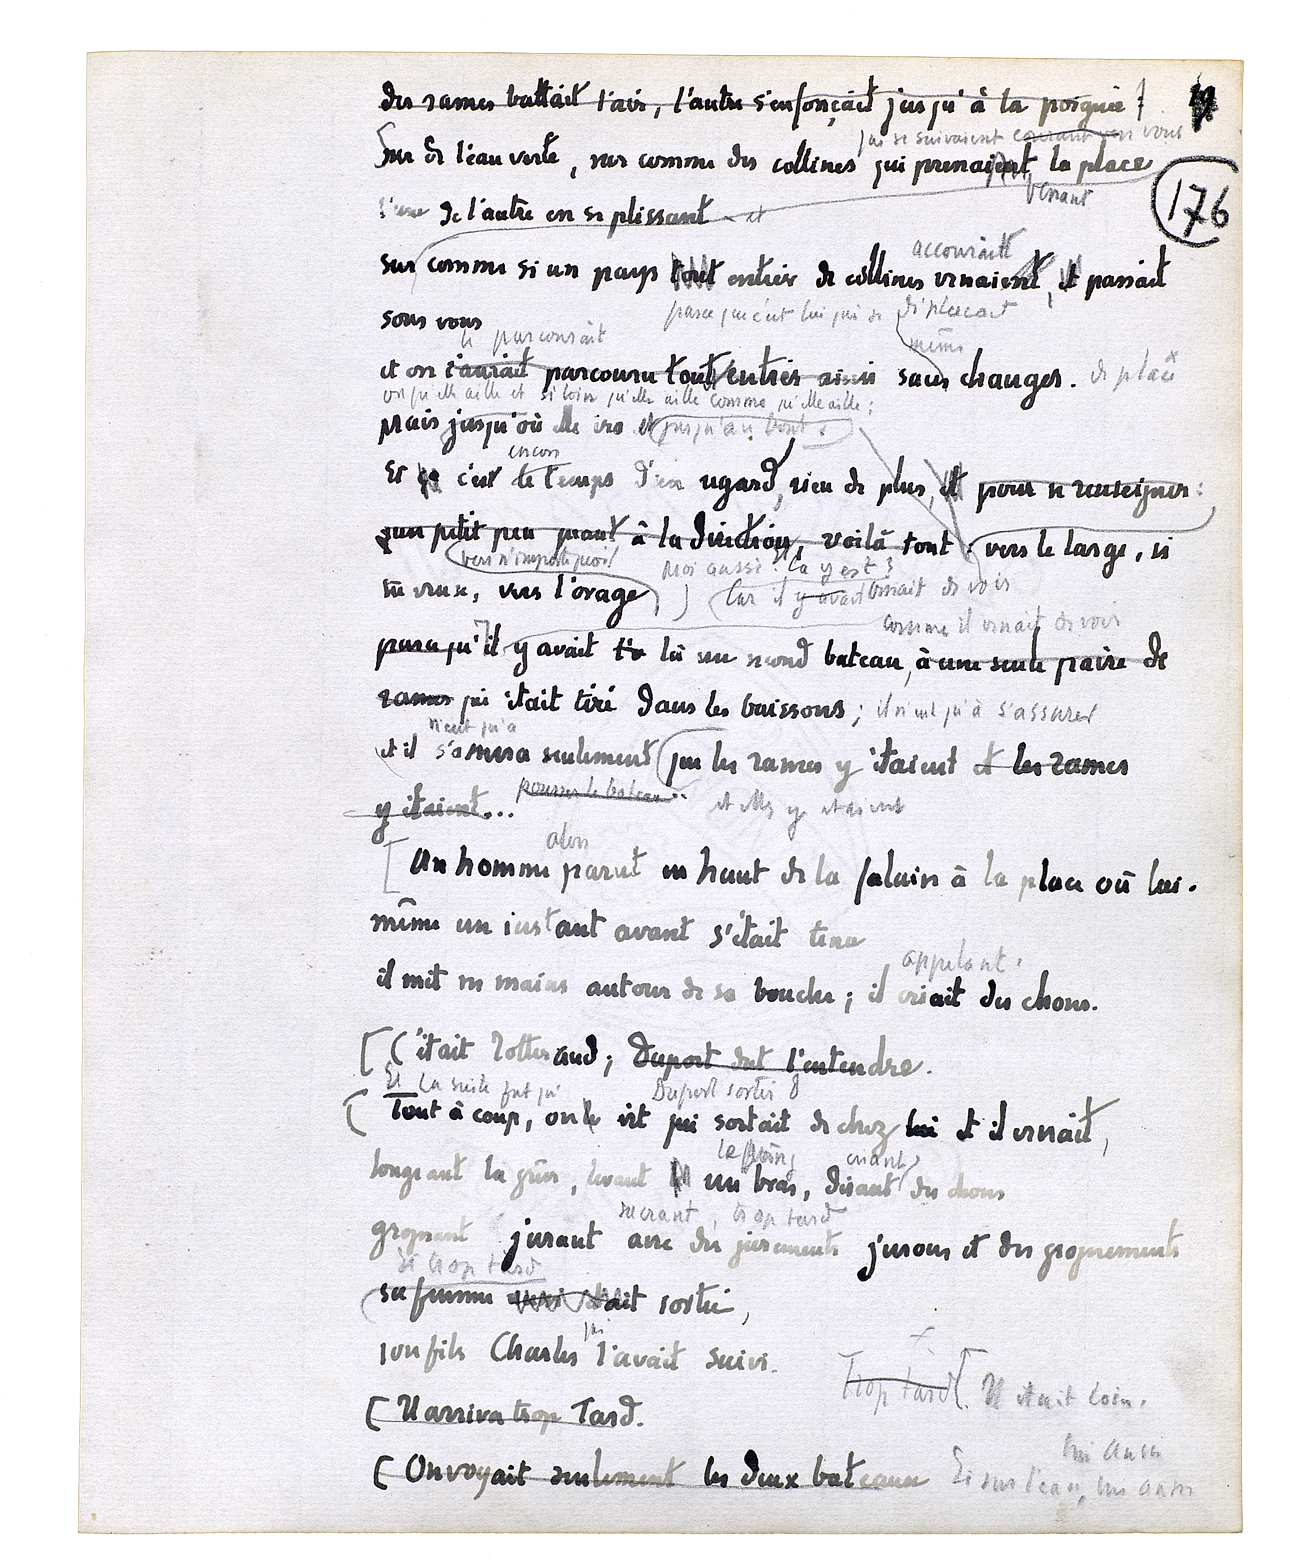 des rames battait l'air, l'autre s'enfonçait jusqu'à la poignée
qui se suivaient courant vers vous
Sur de l'eau verte, sur comme des collines qui prenaient la place
venant
176
l'une de l'autre en se plissant et
accourait
sur comme si un pays tout entier de collines venaient, et passait
sous vous
parce que c'est lui qui se déplaçait
le parcourait
même
et on l'aurait parcouru tout entier ainsi sans changer. de place
où qu'elle aille et si loin qu'elle aille comme qu'elle aille;
Mais jusqu'où elle ira et jusqu'au bout.
encore
Et c'est le temps d'un regard, rien de plus, et pour se renseigner
un petit peu quant à la direction, voilà tout: vers le large, si
vers n'importe quoi!
Moi aussi! Ça y est?
tu veux, vers l'orage
Car il y avait venait de voir
comme il venait de voir
parce qu'il y avait là un second bateau, à une seule paire de
rames qui était tiré dans les buissons; il n'eut qu'à s'assurer
n'eut qu'à
et il s'assura seulement que les rames y étaient et les rames
y étaient...
pousser le bateau..
et elles y étaient
alors
Un homme parut en haut de la falaise à la place où lui-
même un instant avant s'était tenu
appelant.
il mit ses mains autour de sa bouche; il criait des choses.
C'était Rosseraud; Duport dut l'entendre.
Et la suite fut qu'
Duport sortit
Tout à coup, on le vit qui sortait de chez lui et il venait,
le poing
criant,
longeant la grève, levant un bras, disant des choses
sacrant, trop tard
grognant jurant avec des jurements jurons et des grognements
Et trop tard
sa femme était sortie,
qui
son fils Charles l'avait suivi.
Trop tard
Il était loin.
Il arriva trop tard.
lui aussi
On voyait seulement les deux bateaux
Et sur l'eau, lui aussi